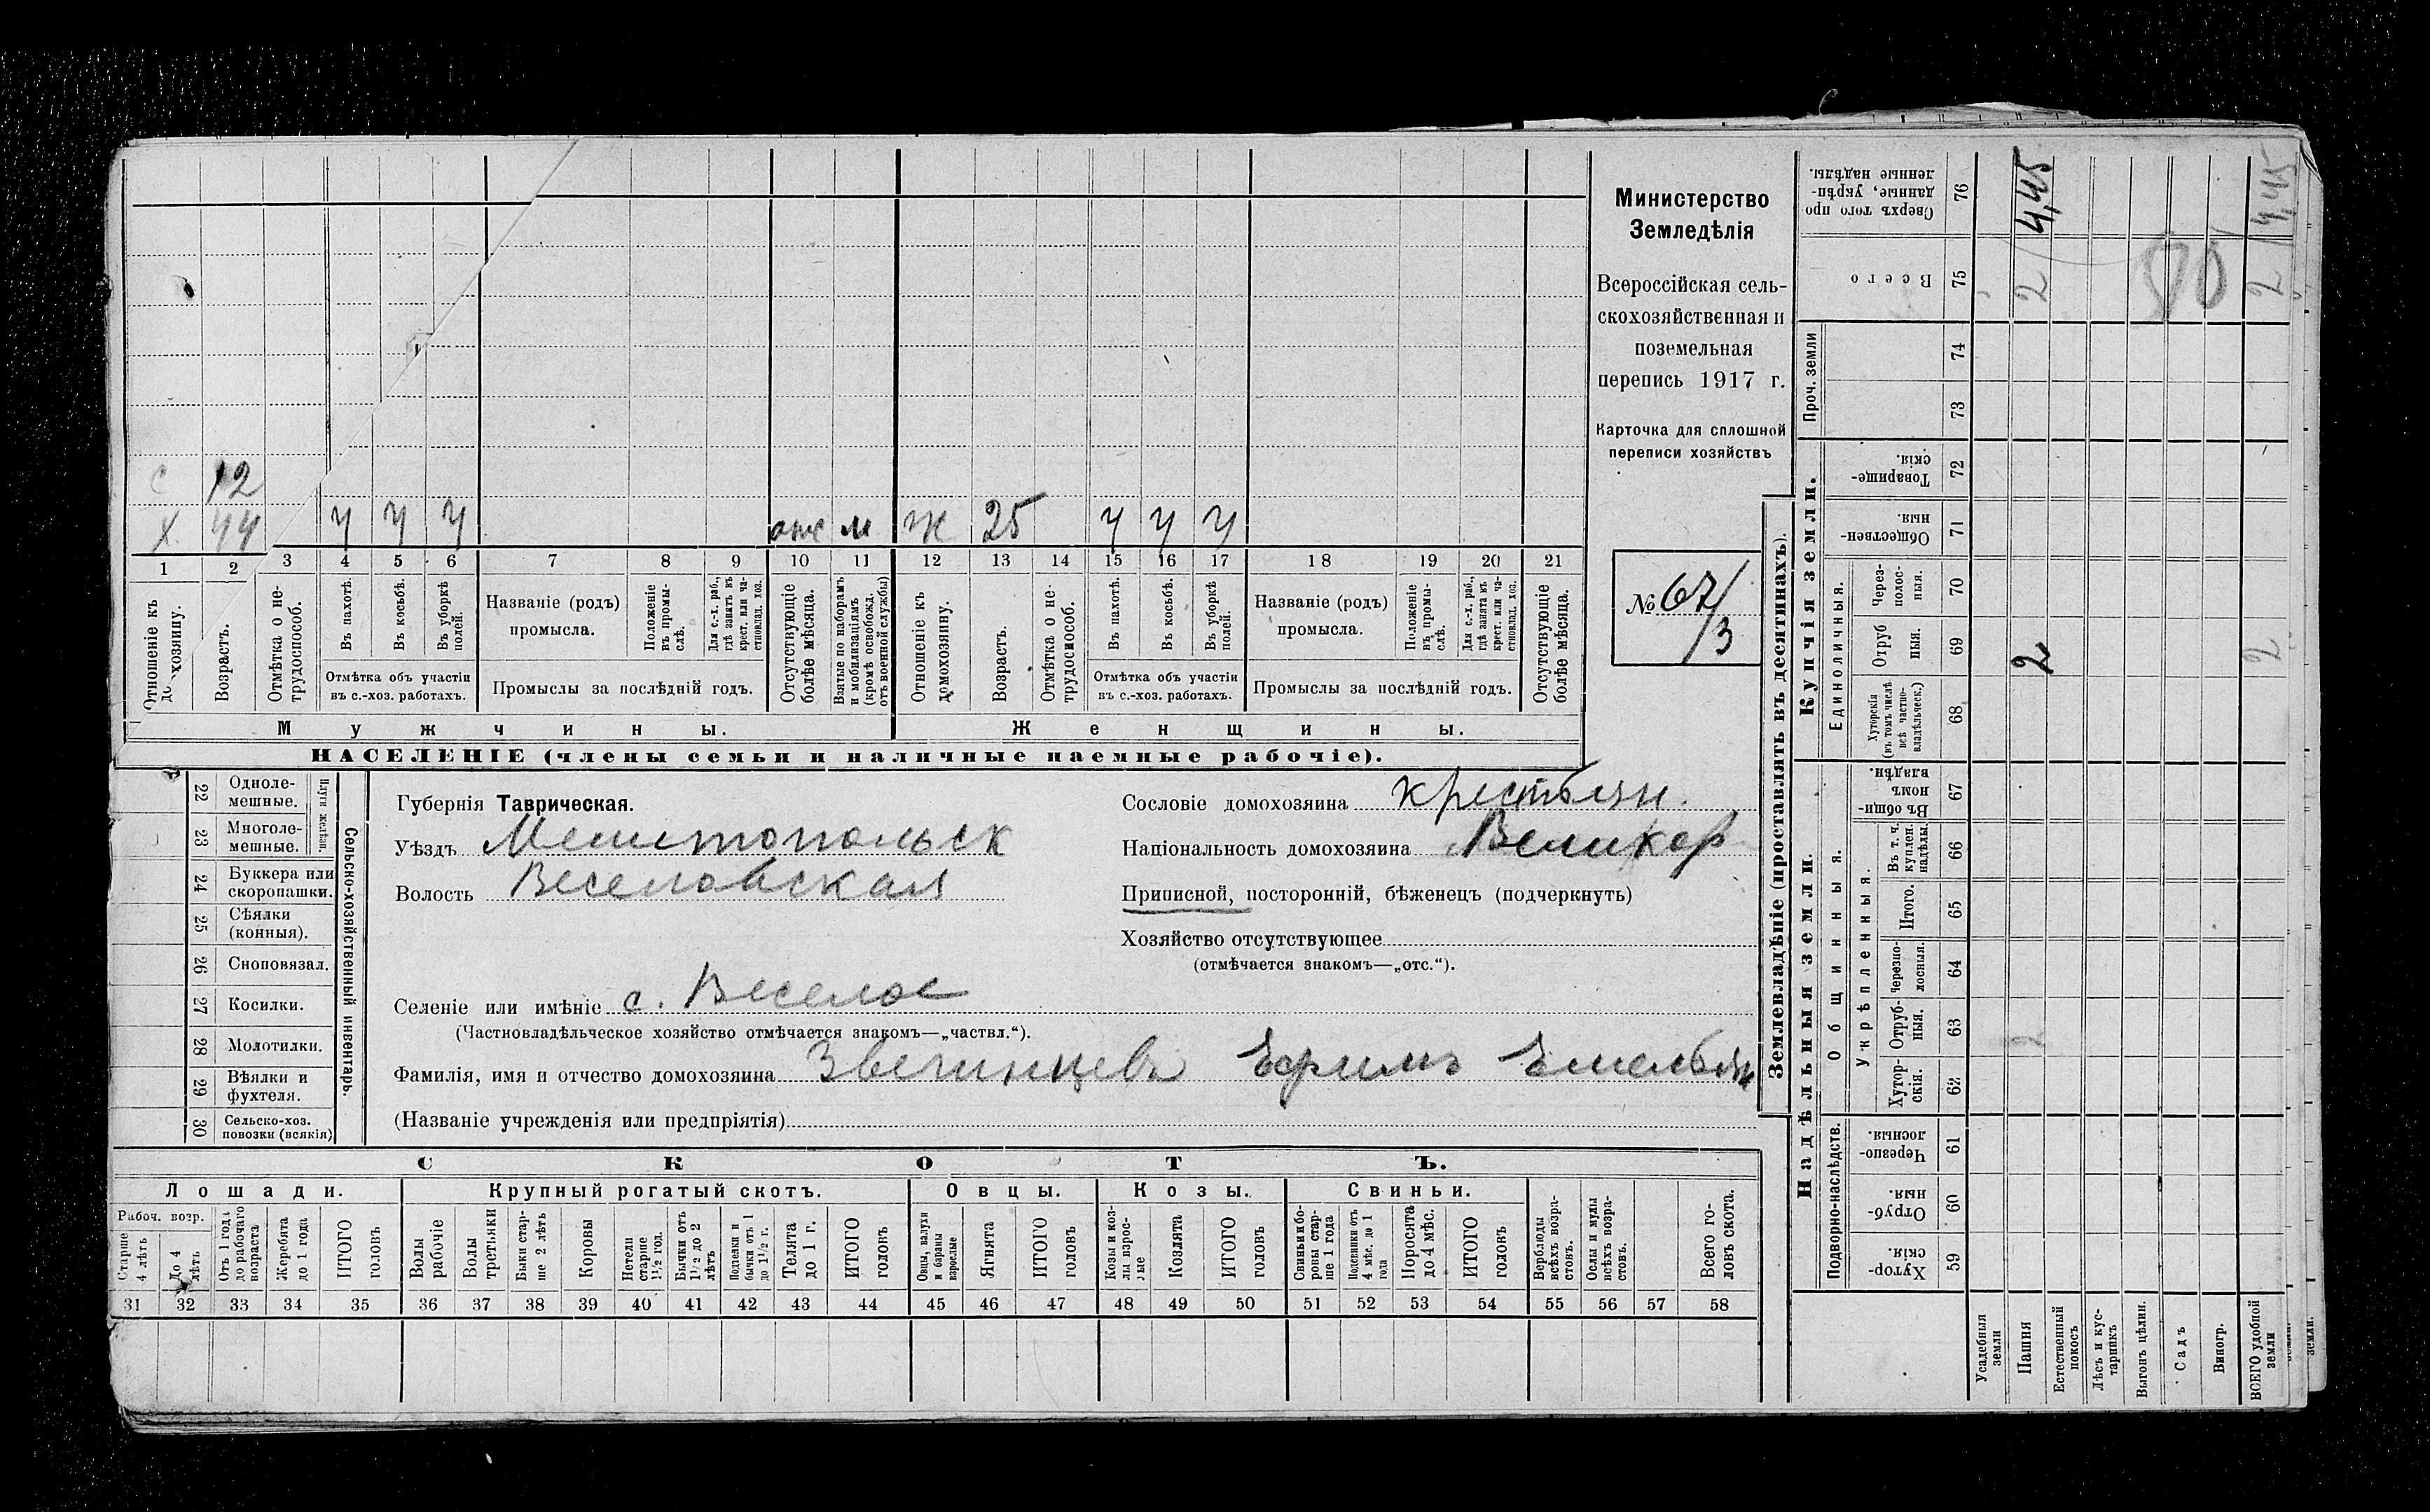 Министерство
Земледѣлія
Всероссійская сель-
скохозяйственная и
поземельная
перепись 1917 г.
Карточка для сплошной
переписи хозяйствъ
№ 67/3
с 12
х 44 у у у м ж 25 у у у
1 2 3 4 5 6 7 8 9 10 11 12 13 14 15 16 17 18 19 20 21
Отношеніе къ домохозяину.
Возрастъ.
Отмѣтка о не-
трудоспособ.
Въ пахотѣ.
Въ косьбѣ.
Въ уборкѣ
полей.
Отмѣтка объ участіи
въ с.-хоз. работахъ.
Названіе (родъ)
промысла.
Положеніе
въ промы-
слѣ.
Для с.-х. раб.,
гдѣ занятъ въ
крест. или ча-
стновлад. хоз.
Промыслы за послѣдній годъ.
Отсутствующіе
болѣе мѣсяца.
Взятые по наборамъ
и мобилизаціямъ
(кромѣ освобожд.
отъ военной службы)
Отношеніе къ
домохозяину.
Возрастъ.
Отмѣтка о не-
трудоспособ.
Въ пахотѣ.
Въ косьбѣ.
Въ уборкѣ
полей.
Отмѣтка объ участіи
въ с.-хоз. работахъ.
Названіе (родъ)
промысла.
Положеніе
въ промы-
слѣ.
Для с.-х. раб.,
гдѣ занята въ
крест. или ча-
стновлад. хоз.
Промыслы за послѣдній годъ.
Отсутствующіе
болѣе мѣсяца.
Мужчины.
Женщины.
НАСЕЛЕНІЕ (члены семьи и наличные наемные рабочіе).
22 Одноле-
мешные.
23 Многоле-
мешные.
Плуги желѣзн.
24 Буккера или
скоропашки.
25 Сѣялки
(конныя).
26 Сноповязал.
27 Косилки.
28 Молотилки.
29 Вѣялки и
фухтеля.
30 Сельско-хоз.
повозки (всякія)
Сельско-хозяйственный инвентарь.
Губернія Таврическая.
Уѣздъ Мелитопольск
Волость Веселовская
Селеніе или имѣніе с. Веселое
(Частновладѣльческое хозяйство отмѣчается знакомъ—„частвл.“).
Фамилія, имя и отчество домохозяина Звегинцевъ Ефимъ Емельян
(Названіе учрежденія или предпріятія)
Сословіе домохозяина крестьян.
Національность домохозяина Великор
Приписной, посторонній, бѣженецъ (подчеркнуть)
Хозяйство отсутствующее
(отмѣчается знакомъ—„отс.“).
СКОТЪ.
Лошади.
Крупный рогатый скотъ.
Овцы.
Козы.
Свиньи.
Рабоч. возр.
Старше
4 лѣтъ
До 4
лѣтъ
Отъ 1 года
до рабочаго
возраста
Жеребята
до 1 года
ИТОГО
головъ
Волы
рабочіе
Волы
третьяки
Быки стар-
ше 2 лѣтъ
Коровы
Нетели
старше
1 1/2 год.
Бычки отъ
1 1/2 до 2
лѣтъ
Подтелки и
бычки отъ 1
до 1 1/2 г.
Телята
до 1 г.
ИТОГО
головъ
Овцы, валухи
и бараны
взрослые
Ягнята
ИТОГО
головъ
Козы и коз-
лы взрос-
лые
Козлята
ИТОГО
головъ
Свиньи и бо-
ровы стар-
ше 1 года
Подсвинки отъ
4 мѣс. до 1
года
Поросята
до 4 мѣс.
ИТОГО
головъ
Верблюды
всѣхъ возра-
стовъ.
Ослы и мулы
всѣхъ возра-
стовъ.
Всего го-
ловъ скота.
31 32 33 34 35 36 37 38 39 40 41 42 43 44 45 46 47 48 49 50 51 52 53 54 55 56 57 58
Землевладѣніе (проставлять въ десятинахъ).
Надѣльныя земли.
Купчія земли.
Проч. земли
Подворно-наслѣдств.
Общинныя.
Укрѣпленныя.
Единоличныя.
Сверхъ того про
данные, укрѣп-
ленные надѣлы.
76
Всего
75
74
73
Товарище-
скія.
72
Обществен-
ныя.
71
Через-
полос-
ныя.
70
Отруб
ныя.
69
Хуторскія
(въ томъ числѣ
всѣ частно-
владѣльческ.)
68
Въ общин
номъ
владѣн.
67
Въ т. ч.
куплен.
надѣлы.
66
Итого.
65
Черезпо-
лосныя.
64
Отруб-
ныя.
63
Хутор-
скія.
62
Черезпо-
лосныя.
61
Отруб-
ныя.
60
Хутор-
скія.
59
Усадебныя
земли
Пашня
Естественный
покосъ
Лѣсъ и кус-
тарникъ
Выгонъ цѣлин.
Садъ
Виногр.
ВСЕГО удобной
земли
земли.
4,45
2
2
2
2 4,45
2